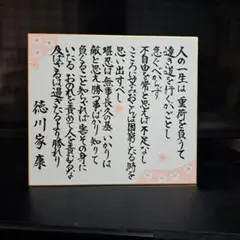 人の一生は重荷を負うて
遠き道を行くがごとし
急ぐべからず
不自由を常と思えば不足なし
こころに望みおこらば困窮したる時を
思い出すべし
堪忍は無事長久の基いかりは
敵と思え勝つ事ばかり知りて
負くること知らざれば害その身に
いたるおのれを責めて人を責むるな
及ばざるは過ぎたるより勝れり
徳川家康